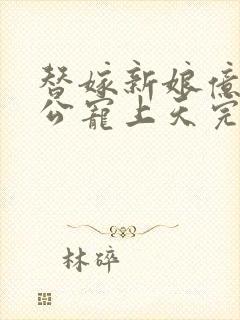 替嫁新娘亿
公宠上天完
林碎